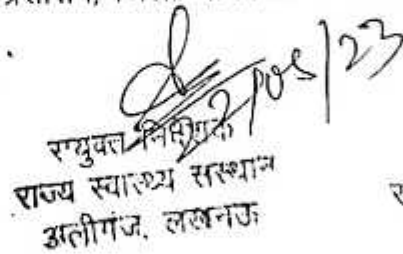 22/05/23
संयुक्त निदेशक
राज्य स्वास्थ्य संस्थान
अलीगंज, लखनऊ